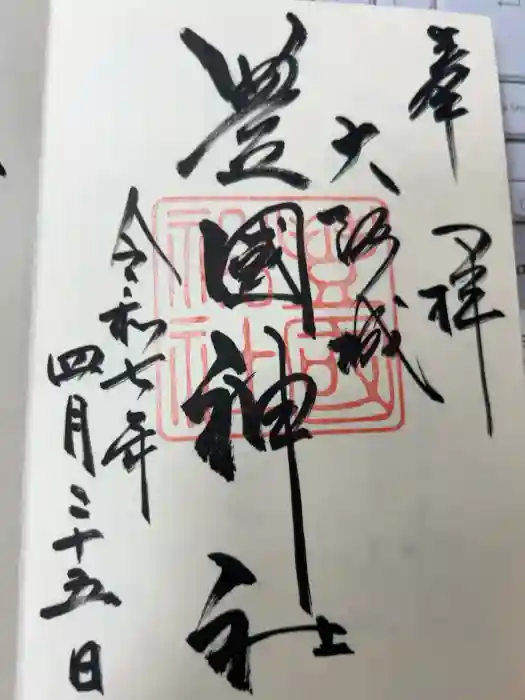 奉拝
大阪城
豊國神社
令和七年
四月二十五日
豊國神社